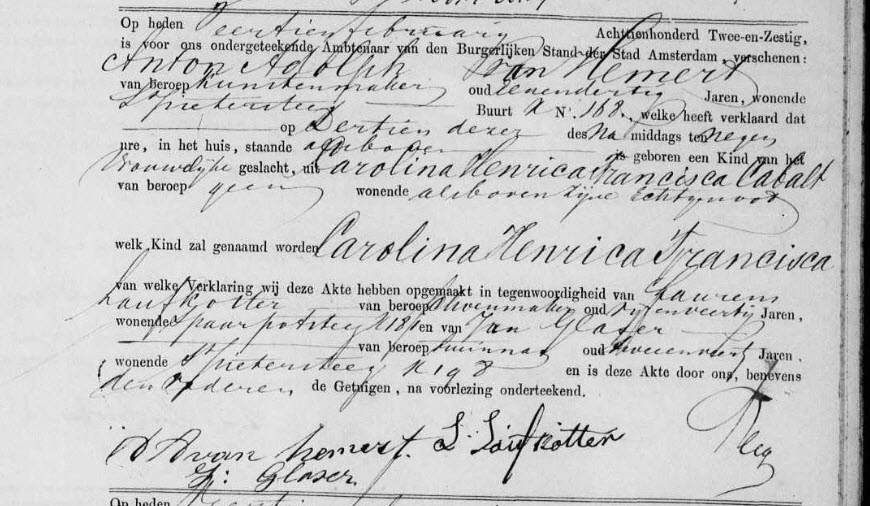 Op heden Veertien februarij Achttienhonderd Twee-en-Zestig,
is voor ons ondergeteekende Ambtenaar van den Burgerlijken Stand der Stad Amsterdam, verschenen:
Anton Adolph van Hemert
van beroep Kunstenmaker oud zevendertig Jaren, wonende
St pietersteeg Buurt N°. 168., welke heeft verklaard dat
op Dertien dezer des Na middags ten negen
ure, in het huis, staande alsboven is geboren een Kind van het
Vrouwelijke geslacht, uit Carolina Henrica Francisca Cabalt
van beroep geen wonende alsboven zijne Echtgenoot
welk Kind zal genaamd worden Carolina Henrica Francisca
van welke Verklaring wij deze Akte hebben opgemaakt in tegenwoordigheid van Laurens
Laufkotter van beroep Schoenmaker oud Jaren,
wonende Spaarpotsteeg en van Jan Glaser
van beroep oud Jaren.
wonende St pietersteeg 198 en is deze Akte door ons, benevens
den Vader en de Getuigen, na voorlezing onderteekend.
A A van hemert. L. Laufkötter
J: Glaser.
Op heden